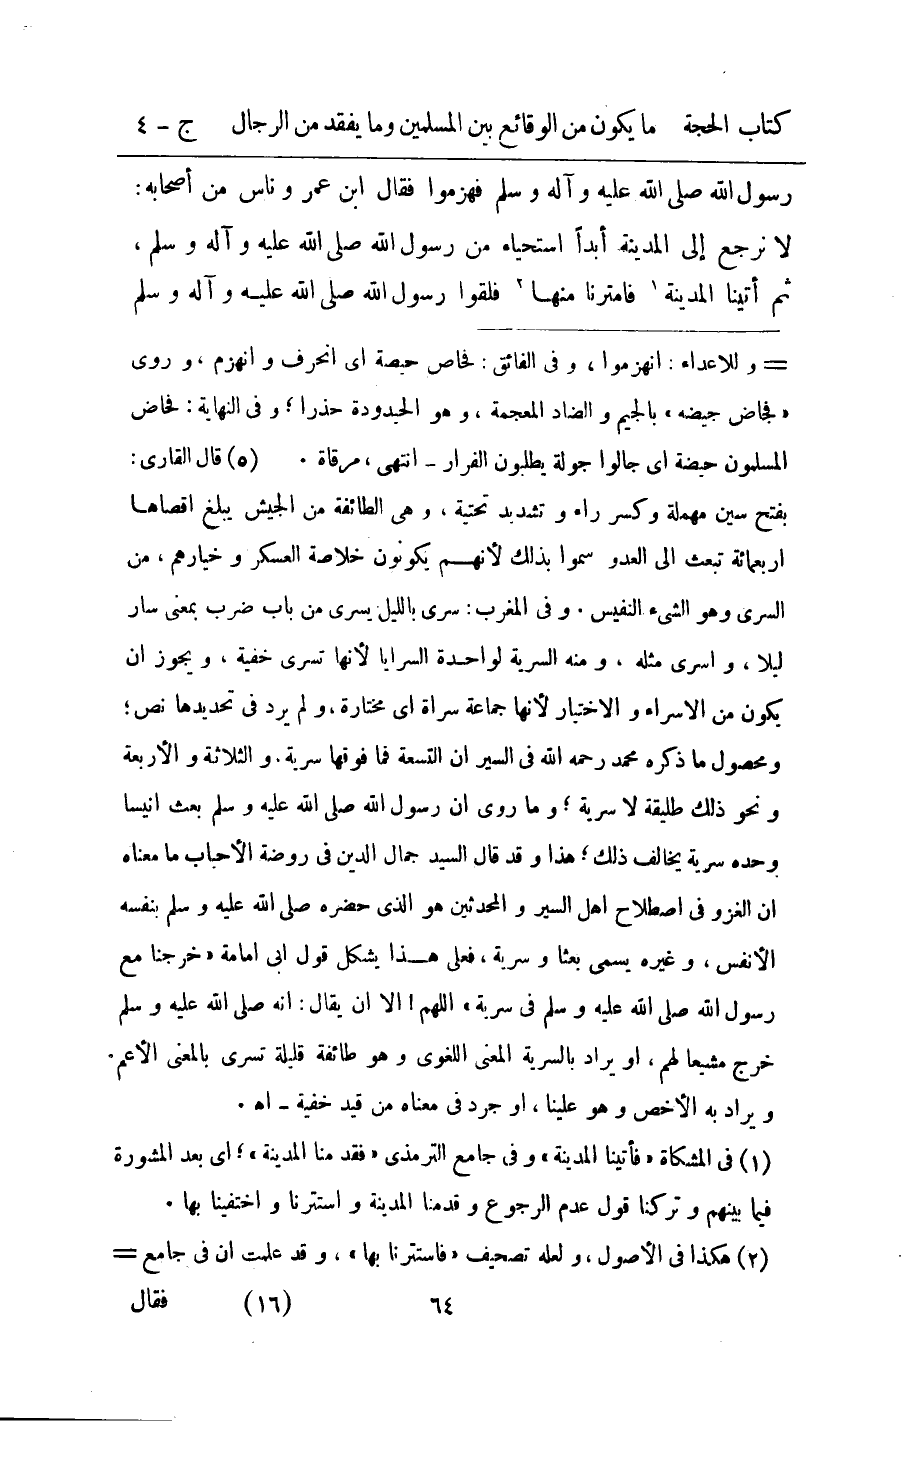 كتاب الحجة ما يكون من الوقائع بين المسلمين وما يفقد من الرجال ج - ٤
رسول الله صلى الله عليه و آله و سلم فهزموا فقال ابن عمر و ناس من أصحابه:
لا نرجع إلى المدينة أبداً استحياء من رسول الله صلى الله عليه و آله و سلم ،
ثم أتينا المدينة ١ فامترنا منهـا ٢ فلقوا رسول الله صلى الله عليـه و آله و سلم
= و للاعداء : انهزموا ، و فى الفائق : فحاص حيصة اى انحرف و انهزم ، و روى
« فجاض جيضه » بالجيم و الضاد المعجمة ، و هو الحيدودة حذرا ؛ و فى النهاية : فحاض
المسلمون حيضة اى جالوا جولة يطلبون الفرار - انتهى ، مرقاة . (٥) قال القارى :
بفتح سين مهملة و كسر راء و تشديد تحتية ، و هى الطائفة من الجيش يبلغ اقصاهـا
اربعمائة تبعث الى العدو سموا بذلك لأنهـم يكونون خلاصة العسكر و خيارهم ، من
السرى وهو الشىء النفيس . و فى المغرب : سرى بالليل يسرى من باب ضرب بمعنى سار
ليلا ، و اسرى مثله ، و منه السرية لواحـدة السرايا لأنها تسرى خفية ، و يجوز ان
يكون من الاسراء و الاختيار لأنها جماعة سراة اى مختارة ، و لم يرد فى تحديدها نص ؛
و محصول ما ذكره محمد رحمه الله فى السير ان التسعة فما فوقها سرية . و الثلاثة و الأربعة
و نحو ذلك طليقة لا سرية ؛ و ما روى ان رسول الله صلى الله عليه و سلم بعث انيسا
وحده سرية يخالف ذلك ؛ هذا و قد قال السيد جمال الدين فى روضة الأحباب ما معناه
ان الغزو فى اصطلاح اهل السير و المحدثين هو الذى حضره صلى الله عليه و سلم بنفسه
الأنفس ، و غيره يسمى بعثا و سرية ، فعلى هـذا يشكل قول ابى امامة « خرجنا مع
رسول الله صلى الله عليه و سلم فى سرية » اللهم ! الا ان يقال : انه صلى الله عليه و سلم
خرج مشيعا لهم ، او يراد بالسرية المعنى اللغوى و هو طائفة قليلة تسرى بالمعنى الأعم .
و يراد به الأخص و هو علينا ، او جرد فى معناه من قيد خفية - اه .
(١) فى المشكاة « فأتينا المدينة » و فى جامع الترمذى « فقد منا المدينة » ؛ اى بعد المشورة
فيما بينهم و تركنا قول عدم الرجوع و قدمنا المدينة و استترنا و اختفينا بها .
(٢) هكذا فى الأصول ، و لعله تصحيف « فاستترنا بها » ، و قد علمت ان فى جامع =
٦٤ (١٦) فقال